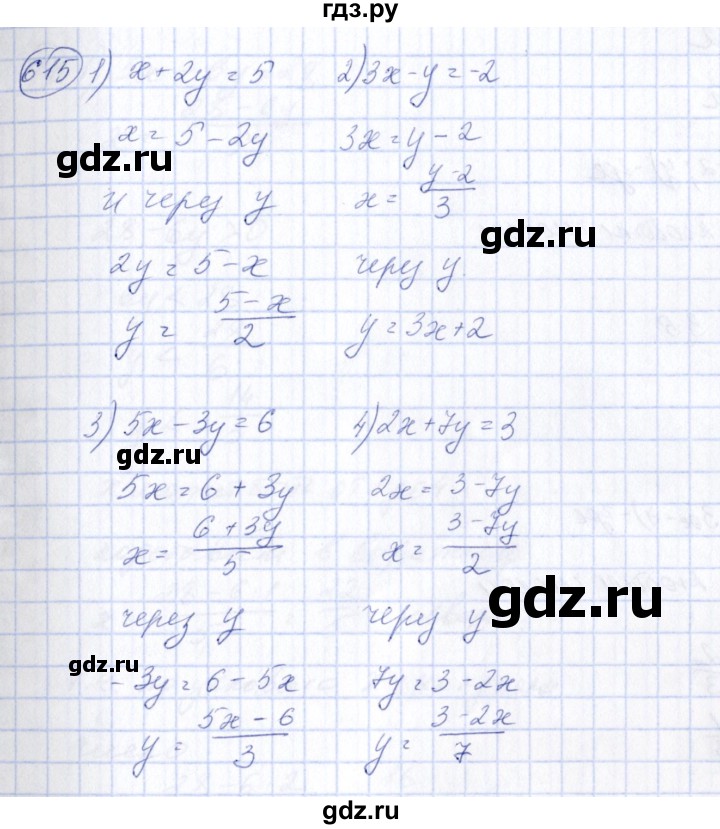 гдз.ру
615 1) x + 2y = 5
x = 5 - 2y
и через y
2y = 5 - x
y = (5 - x)/2
2) 3x - y = -2
3x = y - 2
x = (y - 2)/3
через y.
y = 3x + 2
3) 5x - 3y = 6
5x = 6 + 3y
x = (6 + 3y)/5
через y
- 3y = 6 - 5x
y = (5x - 6)/3
4) 2x + 7y = 3
2x = 3 - 7y
x = (3 - 7y)/2
через y
7y = 3 - 2x
y = (3 - 2x)/7
gdz.ru
gdz.ru
gdz.ru
gdz.ru
gdz.ru
gdz.ru
gdz.ru